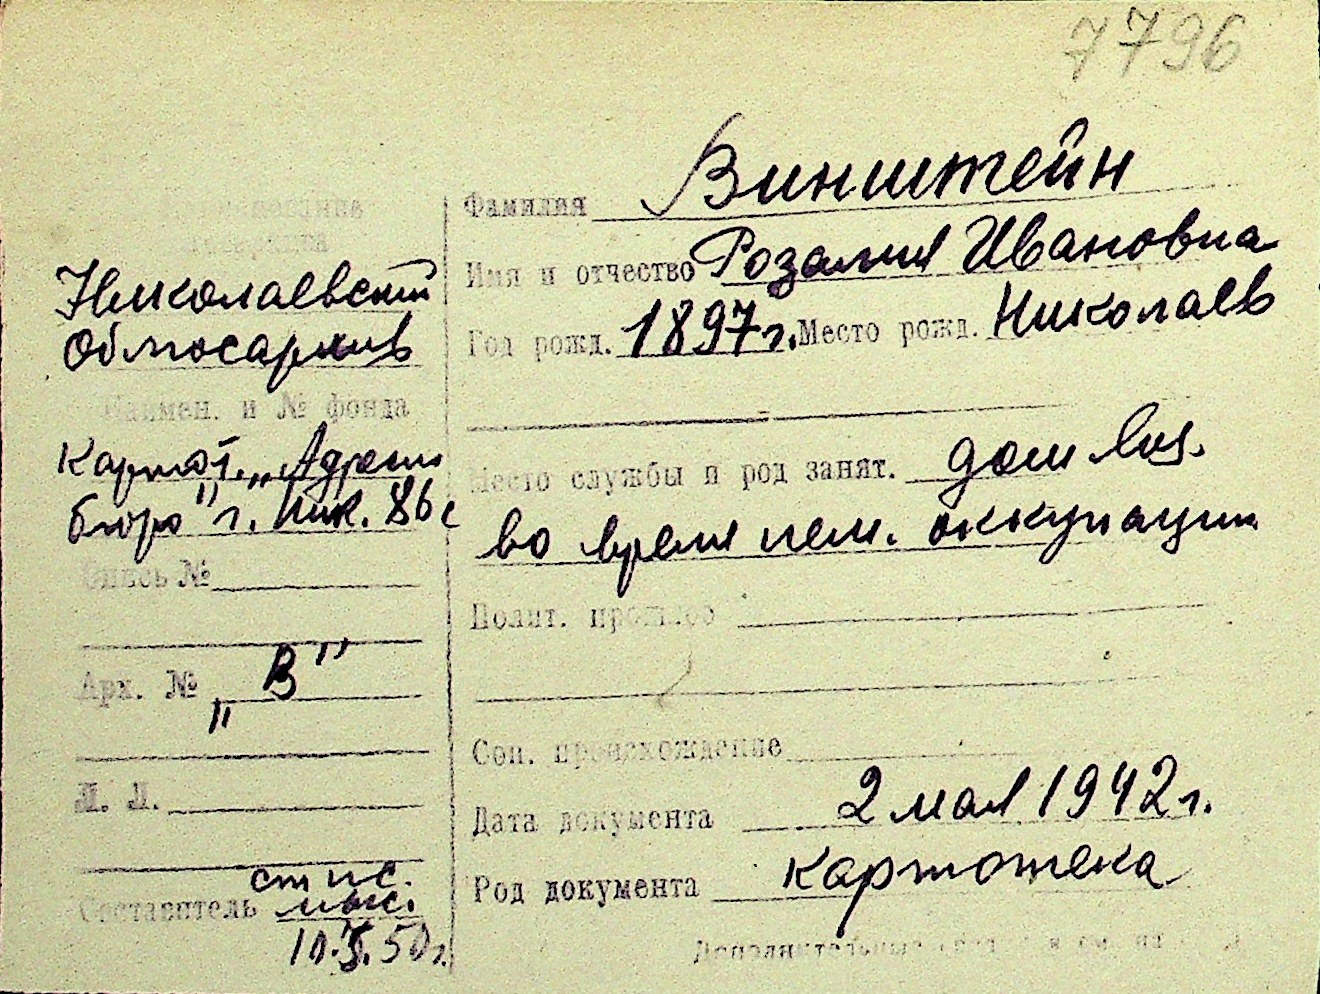 7796
Фамилия Винштейн
Имя и отчество Розалия Ивановна
Год рожд. 1897 г. Место рожд. Николаев
Место службы и род занят. дом хоз.
во время нем. оккупации
Полит. прошлое
Соц. происхождение
Дата документа 2 мая 1942 г.
Род документа картотека
Николаевский
Облгосархив
Наимен. и № фонда
Картот. „Адресн
бюро" г. Ник.
Опись №
Арх. № „В"
Л. Л.
Составитель
10.X.50 г.